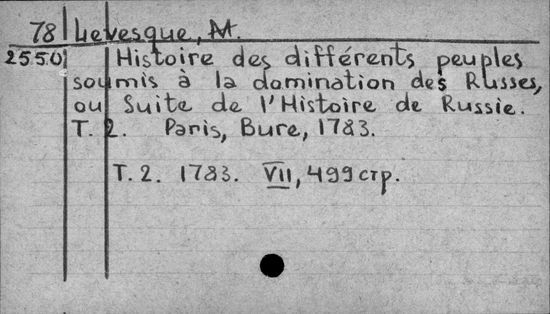 78 Levesque, M.
2550 Histoire des différents peuples
soumis à la domination des Russes,
ou Suite de l'Histoire de Russie.
T. 2. Paris, Bure, 1783.
T. 2. 1783. VII, 499 стр.